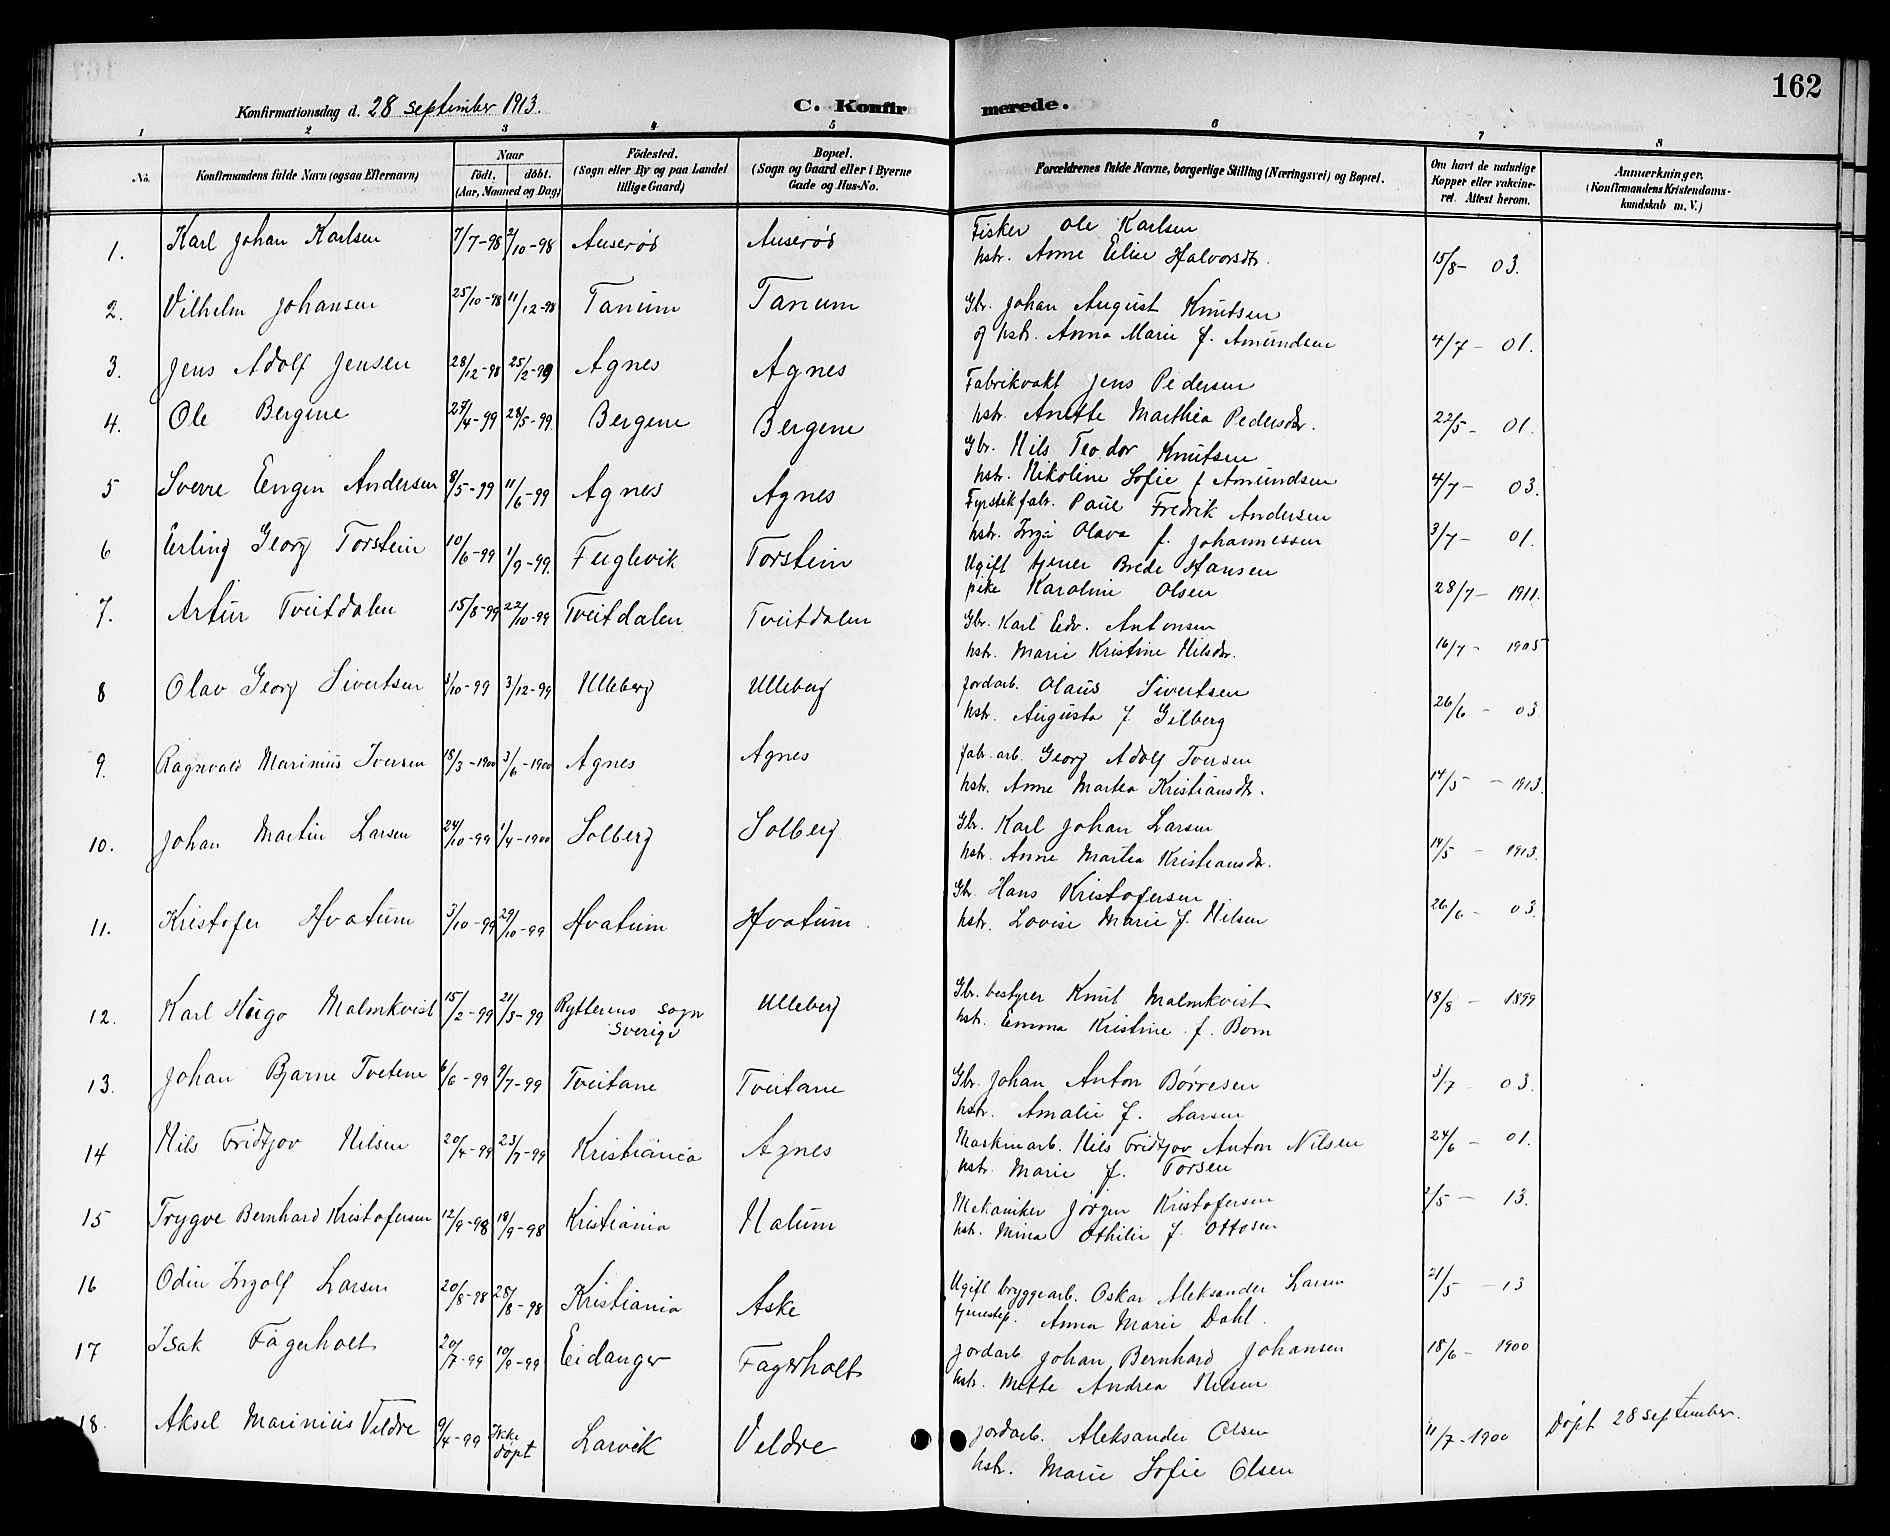 162
Konfirmationsdag d. 28 september 1913.
C. Konfirmerede.
1 2 3 4 5 6 7 8
No. Konfirmandens fulde Navn (ogsaa Efternavn) Naar født. døbt. (Aar, Maaned og Dag) Fødested. (Sogn eller By og paa Landet tillige Gaard) Bopæl. (Sogn og Gaard eller i Byerne Gade og Hus-No. Forældrenes fulde Navne, borgerlige Stilling (Næringsvei) og Bopæl. Om havt de naturlige Kopper eller vakcineret. Attest herom. Anmærkninger. (Konfirmandens Kristendomskundskab m. V.)
1. Karl Johan Karlsen 7/7-98 2/10-98 Auserød Auserød Fisker Ole Karlsen
hstr. Anne Elise Halvorsdtr. 15/8- 03.
2. Vilhelm Johansen 25/10-98 11/12-98 Tanum Tanum Gbr. Johan August Knutsen
og hstr. Anna Marie f. Amundsen 4/7- 01.
3. Jens Adolf Jensen 28/12-98 25/2-99 Agnes Agnes Fabrikvakt Jens Pedersen
hstr. Anette Marthea Pedersdtr. 22/5- 01.
4. Ole Bergene 27/4-99 28/5-99. Bergene Bergene Gbr. Nils Teodor Knutsen
hstr. Nikoline Sofie f Amundsen 4/7- 03.
5 Sverre Eugen Andersen 8/5-99 11/6-99 Agnes Agnes Fyrstikfabr. Paul Fredrik Andersen
hstr. Inga Olava f. Johannessen 3/7- 01.
6 Erling Georg Torstein 10/6-99 1/9-99. Fuglevik Torstein Ugift tjener Brede Hansen
pike Karoline Olsen 28/7- 1911.
7. Artur Tveitdalen 15/8-99 22/10-99 Tveitdalen Tveitdalen Gbr. Karl Edv. Antonsen
hstr. Marie Kristine Nilsdtr. 16/7- 1905
8 Olav Georg Sivertsen 3/10-99 3/12-99 Ulleberg Ulleberg Jordarb. Olaus Sivertsen
hstr. Augusta f. Gilberg 26/6- 03
9. Ragnvald Marinius Iversen 18/3-1900 3/6-1900 Agnes Agnes fabr. arb. Georg Adolf Iversen
hstr. Anne Martea Kristiansdtr. 14/5- 1913.
10. Johan Martin Larsen 24/10-99 1/4-1900 Solberg Solberg Gbr. Karl Johan Larsen
hstr. Anne Martea Kristiansdtr. 14/5- 1913.
11. Kristofer Hvatum 3/10-99 29/10-99 Hvatum Hvatum. Gbr. Hans Kristofersen
hstr. Lovise Marie f. Nilsen 26/6- 03.
12. Karl Hugo Malmkvist 15/2-99 21/3-99 Rytterns sogn Sverige Ulleberg Gbr. bestyrer Knut Malmkvist
hstr. Emma Kristine f. Bom 18/8- 1899
13. Johan Bjarne Tvetene 6/6-99 9/7-99 Tveitane Tveitane Gbr. Johan Anton Børresen
hstr. Amalie f. Larsen 3/7- 03.
14 Nils Fridtjov Nilsen 20/4-99 23/7-99 Kristiania Agnes Maskinarb. Nils Fridtjov Anton Nilsen
hstr. Marie f. Torsen 24/6- 01.
15 Trygve Bernhard Kristofersen 12/9-98 18/9-98 Kristiania Nalum Mekaniker Jørgen Kristofersen
hstr. Mina Othilie f. Ottosen 2/5- 13.
16 Odin Ingolf Larsen 20/8-98 28/8-98 Kristiania Aske Ugift bryggearb. Oskar Aleksander Larsen
tjenestep. Anna Marie Dahl. 21/5- 13
17 Isak Fagerholt 20/7-99 10/9-99 Eidanger Fagerholt Jordarb. Johan Bernhard Johansen
hstr. Mette Andrea Nilsen 18/6- 1900
18. Aksel Marinius Veldre 9/4-99 Ikke døpt Larvik Veldre Jordarb. Aleksander Olsen
hstr. Marie Sofie Olsen 11/7-1900 Døpt 28 september.